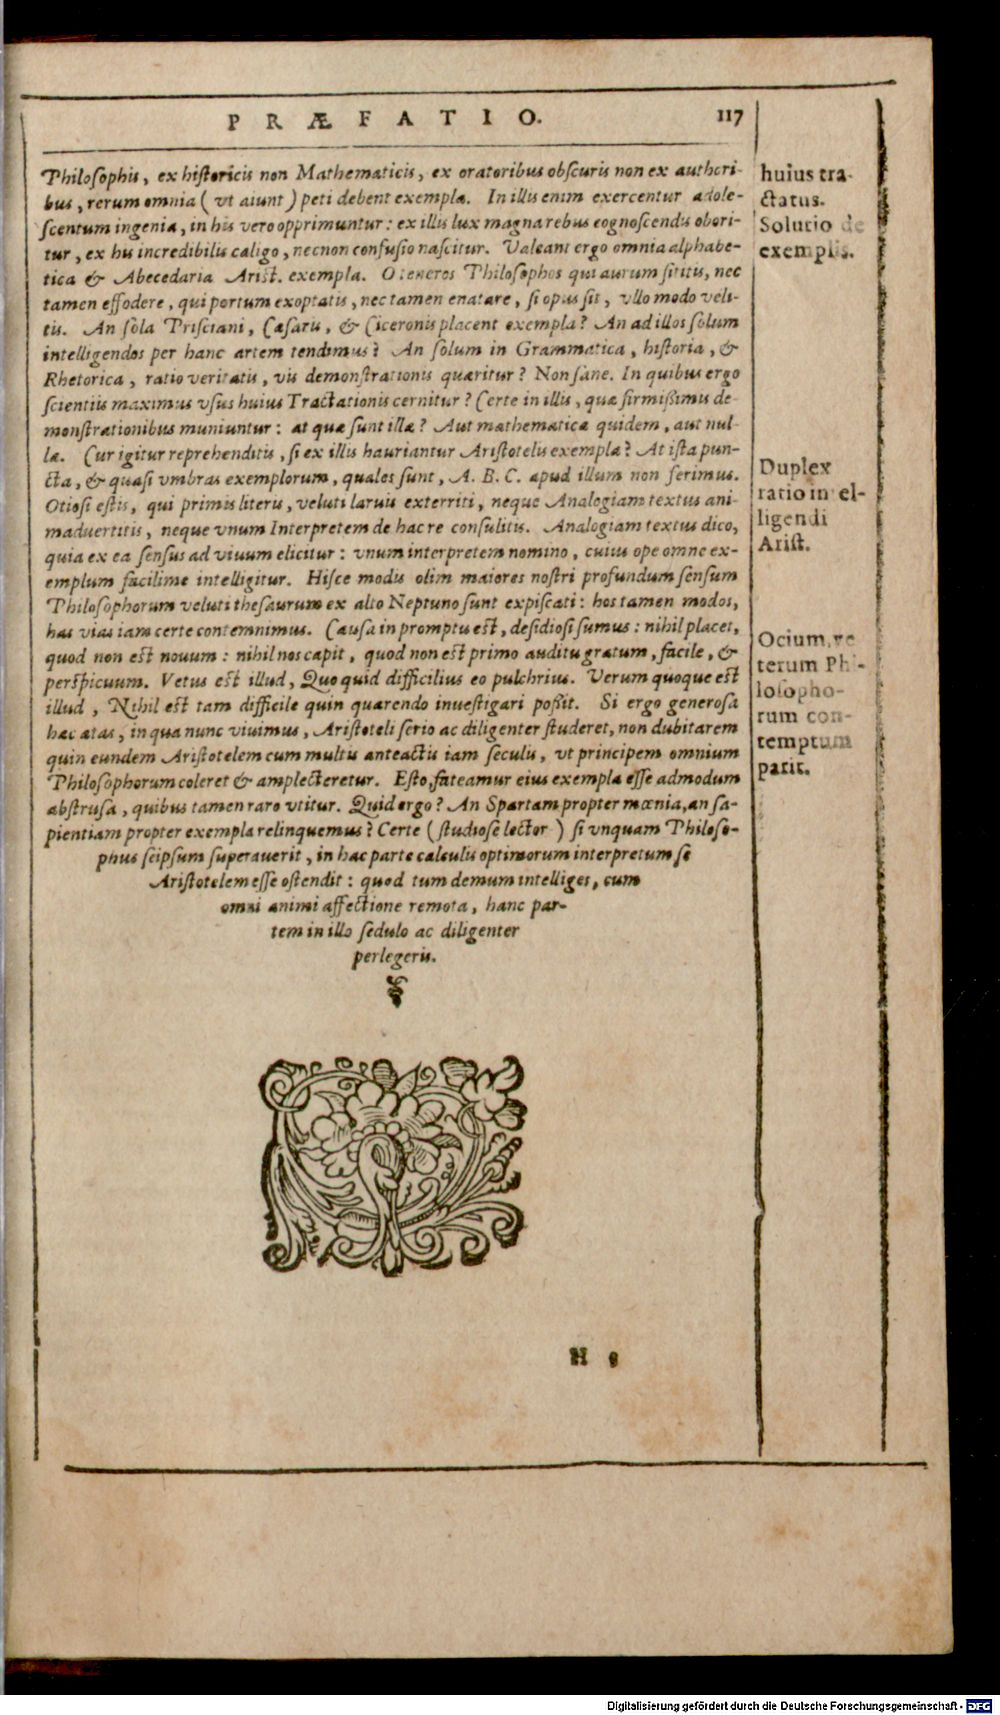 PRÆFATIO. 117
Philosophis, ex historicis non Mathematicis, ex oratoribus obscuris non ex authori-
bus, rerum omnia (vt aiunt) peti debent exempla. In illis enim exercentur adole-
scentum ingenia, in his vero opprimuntur: ex illis lux magna rebus cognoscendis obori-
tur, ex his incredibilis caligo, necnon confusio nascitur. Valeant ergo omnia alphabe-
tica & Abecedaria Arist. exempla. O teneros Philosophos qui aurum sititis, nec
tamen effodere, qui portum exoptatis, nec tamen enatare, si opus sit, vllo modo veli-
tis. An sola Prisciani, Cæsaris, & Ciceronis placent exempla? An ad illos solum
intelligendos per hanc artem tendimus? An solum in Grammatica, historia, &
Rhetorica, ratio veritatis, vis demonstrationis quæritur? Non sane. In quibus ergo
scientiis maximus vsus huius Tractationis cernitur? Certe in illis, quæ firmißimis de-
monstrationibus muniuntur: at quæ sunt illæ? Aut mathematicæ quidem, aut nul-
læ. Cur igitur reprehenditis, si ex illis hauriantur Aristotelis exempla? At ista pun-
cta, & quasi vmbras exemplorum, quales sunt, A. B. C. apud illum non ferimus.
Otiosi estis, qui primis literis, veluti laruis exterriti, neque Analogiam textus ani-
maduertitis, neque vnum Interpretem de hac re consulitis. Analogiam textus dico,
quia ex ea sensus ad viuum elicitur: vnum interpretem nomino, cuius ope omne ex-
emplum facilime intelligitur. Hisce modis olim maiores nostri profundum sensum
Philosophorum veluti thesaurum ex alto Neptuno sunt expiscati: hos tamen modos,
has vias iam certe contemnimus. Causa in promptu est, desidiosi sumus: nihil placet,
quod non est nouum: nihil nos capit, quod non est primo auditu gratum, facile, &
perspicuum. Vetus est illud, Quo quid difficilius eo pulchrius. Verum quoque est
illud, Nihil est tam difficile quin quærendo inuestigari poßit. Si ergo generosa
hæc ætas, in qua nunc viuimus, Aristoteli serio ac diligenter studeret, non dubitarem
quin eundem Aristotelem cum multis anteactis iam seculis, vt principem omnium
Philosophorum coleret & amplecteretur. Esto, fateamur eius exempla esse admodum
abstrusa, quibus tamen raro vtitur. Quid ergo? An Spartam propter mœnia, an sa-
pientiam propter exempla relinquemus? Certe (studiose lector) si vnquam Philoso-
phus seipsum superauerit, in hac parte calculis optimorum interpretum se
Aristotelem esse ostendit: quod tum demum intelliges, cum
omni animi affectione remota, hanc par-
tem in illo sedulo ac diligenter
perlegeris.
huius tra-
ctatus.
Solutio de
exemplis.
Duplex
ratio in el-
ligendi
Arist.
Ocium, ve
terum Phi-
losopho-
rum con-
temptum
parit.
H
Digitalisierung gefördert durch die Deutsche Forschungsgemeinschaft - DFG